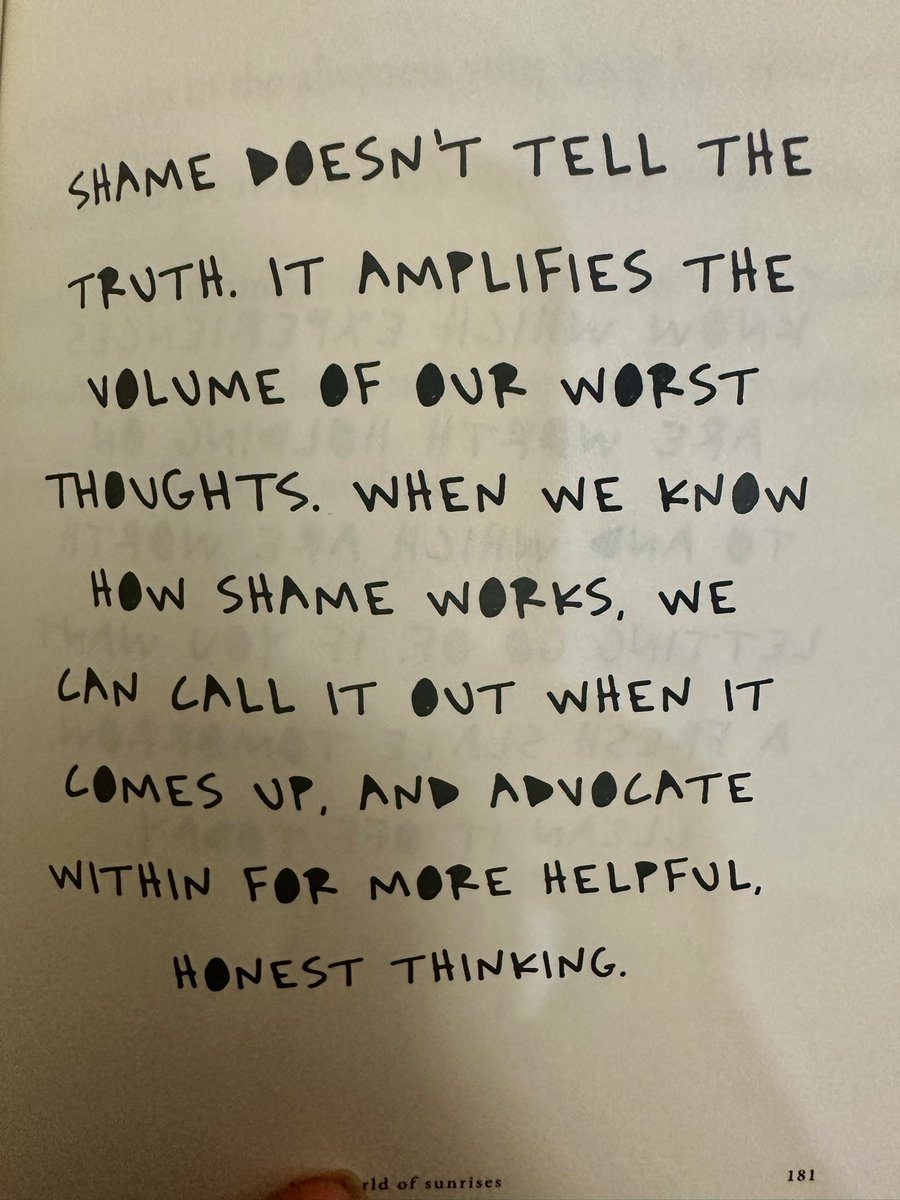 SHAME DOESN'T TELL THE
TRUTH. IT AMPLIFIES THE
VOLUME OF OUR WORST
THOUGHTS. WHEN WE KNOW
HOW SHAME WORKS, WE
CAN CALL IT OUT WHEN IT
COMES UP, AND ADVOCATE
WITHIN FOR MORE HELPFUL,
HONEST THINKING.
rld of sunrises 181